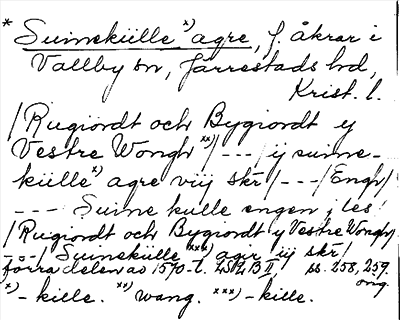 * Suinekülle x) agre, f. åkrar i
Vallby sn, Järrestads hd,
Krist. l.
/Rugiordt och Bygiordt y
Vestre Wongh xx)/---/ij suine-
külle x) agre viij skr/---/Engh/
--- Suine kulle engen j les!
/Rugiordt och Bygiordt y Vestre Wongh/
---/ Suinekülle xxx) agir iij skr/
förra delen av 1570-t. LSLB II, ss. 258, 259
orig.
x) - kille. xx) wang. xxx) - kille.